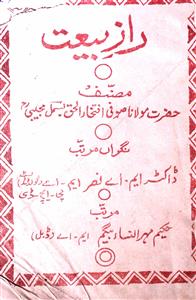 رازِ بیعت
مصنّف
حضرت مولانا صوفی افتخار الحق بسمل مجیبی
نگراں مرتب
ڈاکٹر ایم ۔ اے نصر ایم ۔ اے
پی ۔ ایچ ۔ ڈی
مرتب
حکیم مہر النساء بیگم ایم ۔ اے ڈبل